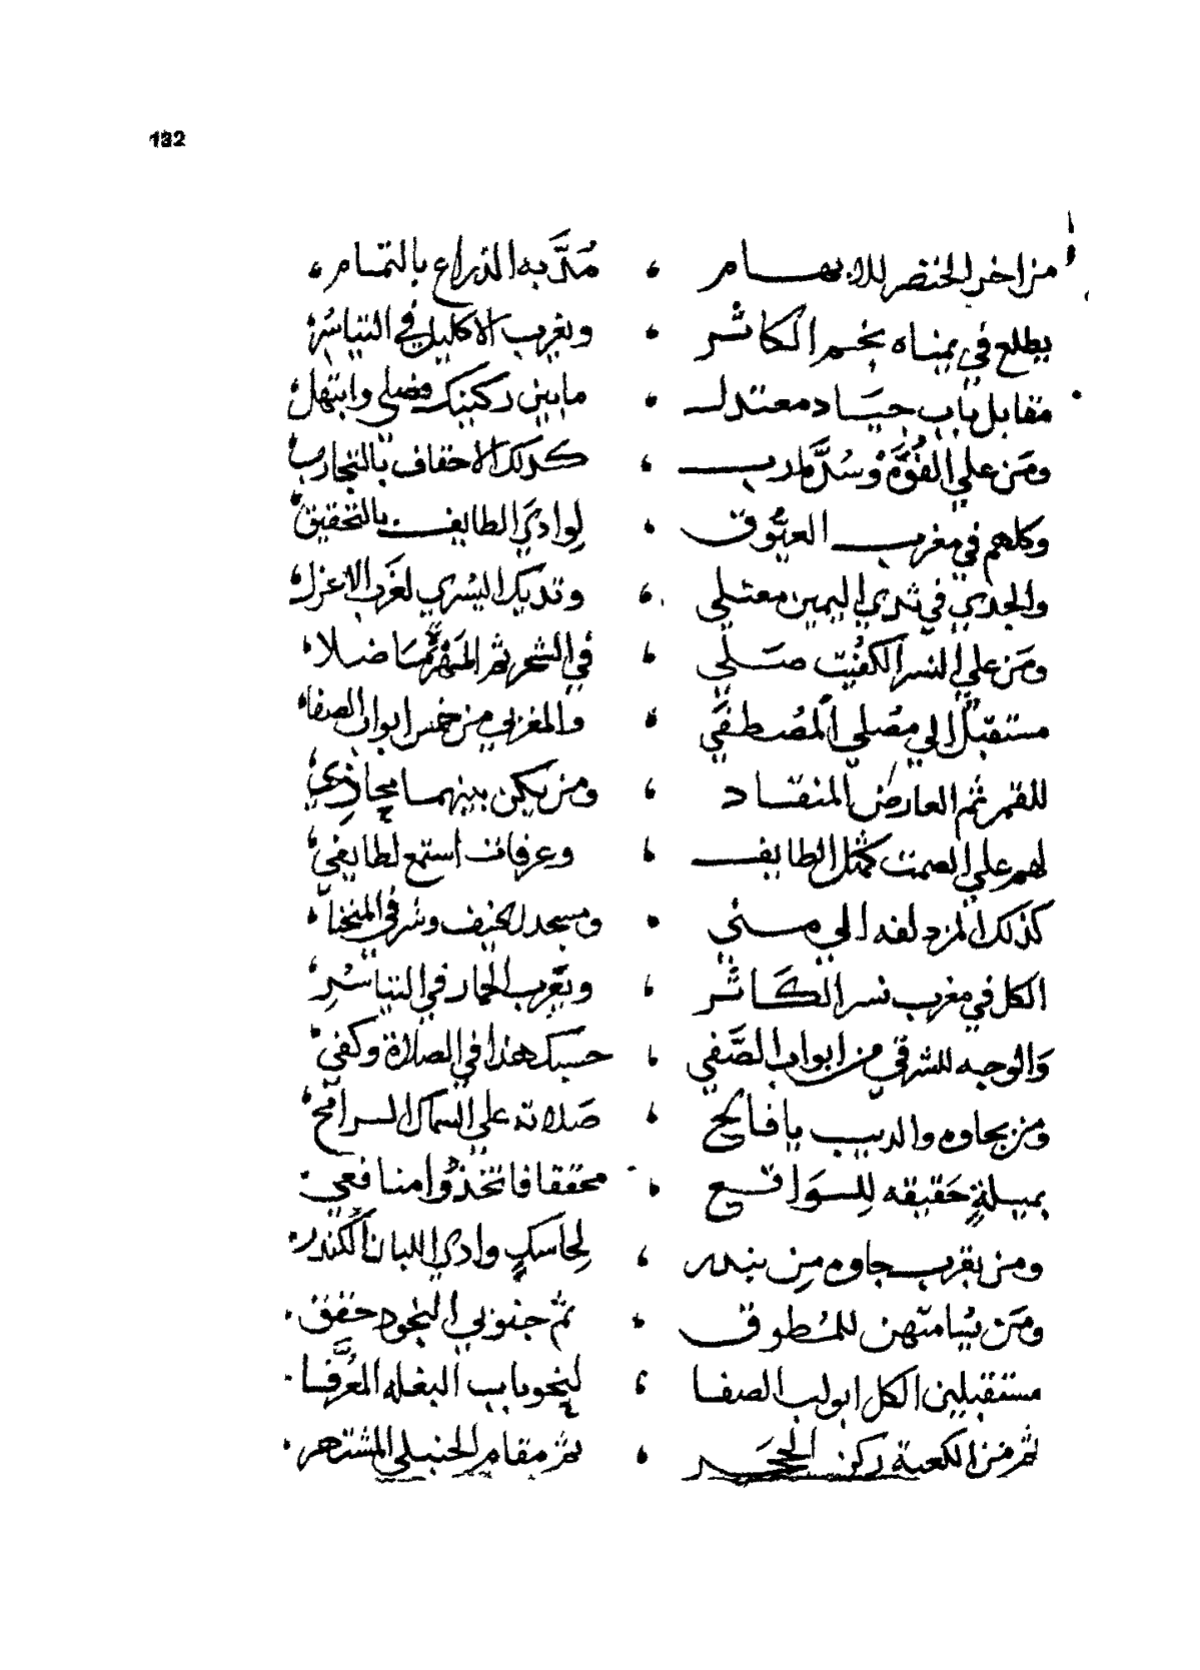 132
من اخر الخنصر للابهام ، مُدَّ به الذراع بالتمام ،
يطلع في يمناه نجم الكاثر ، ويغرب الاكليل في التياسُر
مقابل باب جياد معتدل ، مابين ركنيك فصلي وابتهل
ومَن علي القُوَّة وسُدَّ مارب ، كذلك الاحقاف بالتجارب
وكلهم في مغرب العيُّوق ، لوادي الطايف بالتحقيق
والجدي في ثدي اليمين معتلي ، وثديك اليسري لغَرب الاعزل
ومَن علي النسر الكفيت صَلّي ، في الشحر ثم
مستقبلاً الي مصلي المُصطفَي ، والمغربي من خمس ابواب الصفا
للقمر ثم العارض المنقاد ، ومن يكن بينهما محاذي
لهم علي الصمت كمثل الطايف ، وعرفات استمع لطايفي
كذلك المزدلفه الي مني ، ومسجد الخيف وشرقي المنحنا
الكل في مغرب نسر الكَاثر ، ويغرب الحمار في التياسُر
وَالوجه للشرقي من ابواب الصَّفي ، حسبك هذا في الصلاة وكفي
ومن بجاوه والديب يا فالح ، صَلاته علي السماك الرامح
بميلةٍ حَقيقه للسوَاقع ، محققا فاتخذوا منافعي
ومن بقرب جاوه مِن بندر ، لحاسكٍ وادي اللبان الكندر
ومَن يُسامتهن للمُطوق ، ثم جنوبي النجود حقق
مستقبلين الكل ابواب الصفا ، لنحو باب البغله المعرَّفا
ثم من الكعبة ركن الحجَر ، ثم مقام الحنبلي المشتهر